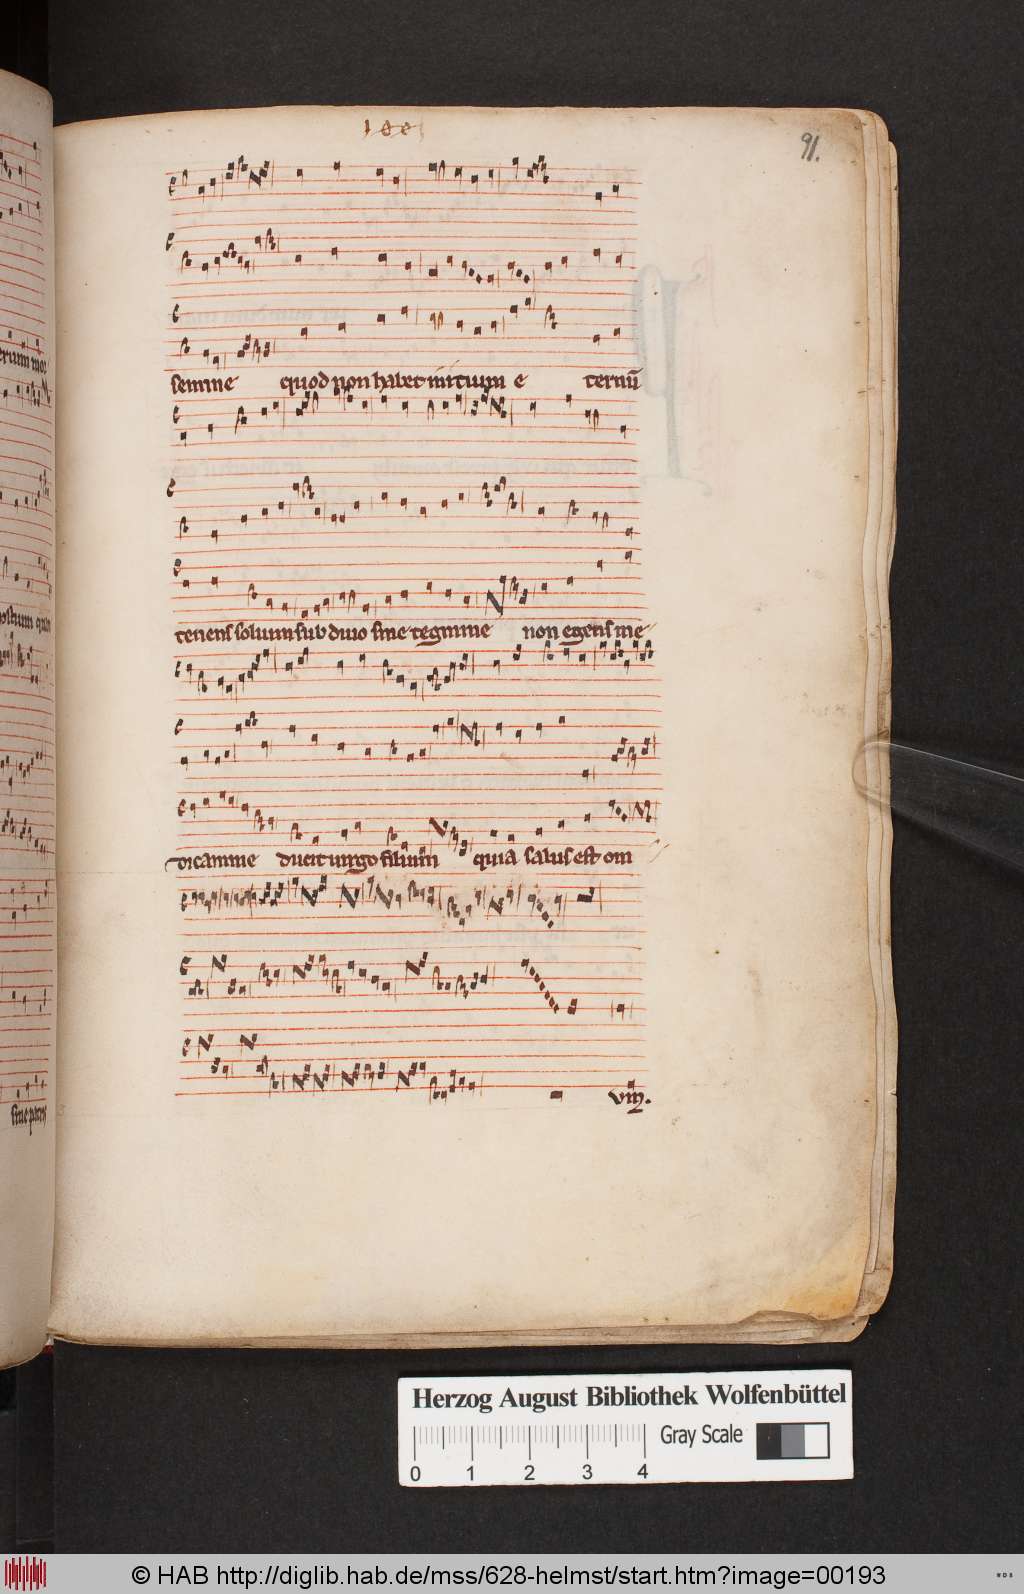 100
91.
semine quod non habet initium e ternū
tenens solium sub diuo sine tegmine non egens me
dicamine ducit uirgo filium quia salus est om
viij.
Herzog August Bibliothek Wolfenbüttel
Gray Scale
0 1 2 3 4
© HAB http://diglib.hab.de/mss/628-helmst/start.htm?image=00193